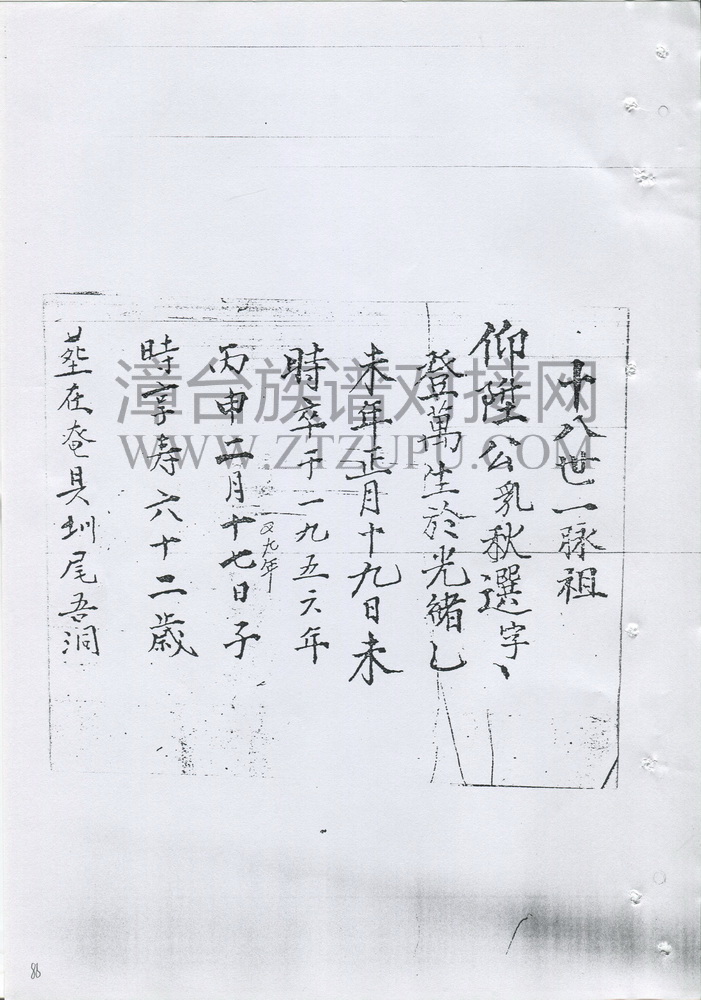 十八世一脉祖
仰陞公乳秋選字、
登萬生於光緒乙
未年正月十九日未
時卒于一九五六年
又九年
丙申二月十七日子
時享寿六十二歲
在奄具圳尾吾洞
漳台族谱对接网
WWW.ZTZUPU.COM
86